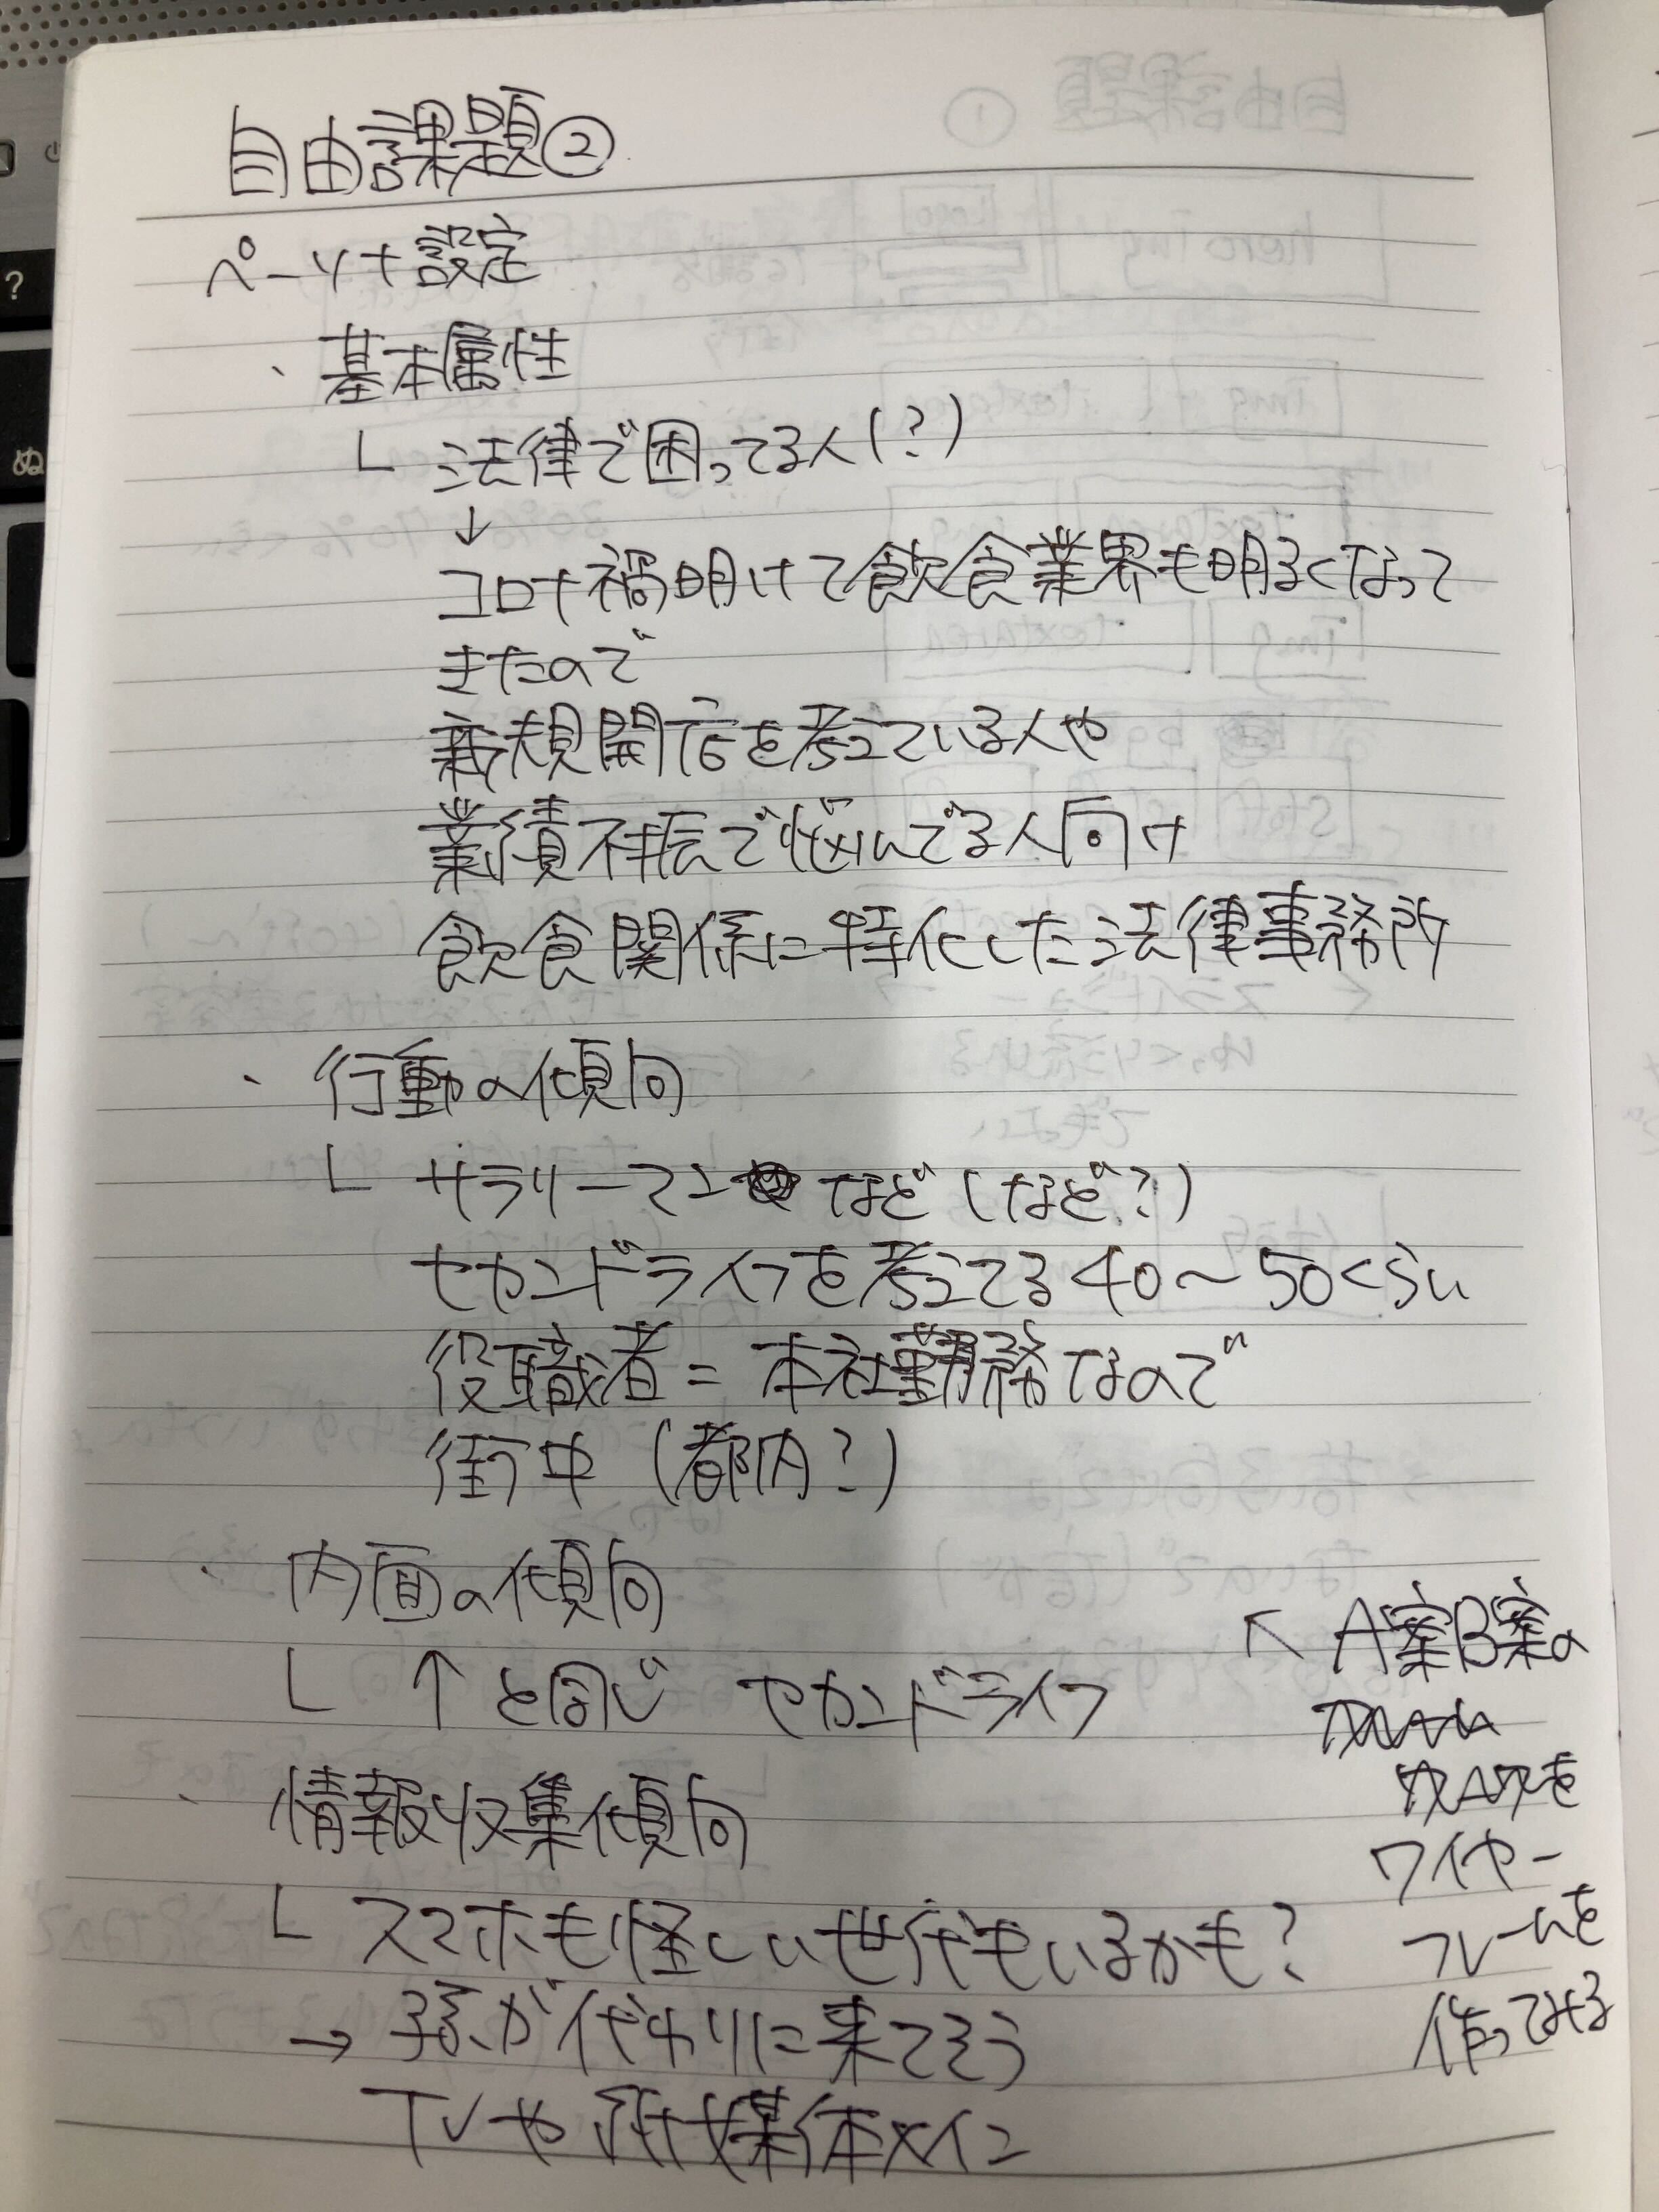 自由課題②
ペーソナ設定
・基本属性
└ 法律で困ってる人(?)
↓
コロナ禍明けて飲食業界も明るくなって
きたので
新規開店を考えている人や
業績不振で悩んでる人向け
飲食関係に特化した法律事務所
・行動の傾向
└ サラリーマン など(など?)
セカンドライフを考えてる40〜50くらい
役職者=本社勤務なので
街中(都内?)
・内面の傾向
└ ↑と同じ セカンドライフ
・情報収集傾向
└ スマホも怪しい世代もいるかも?
→ 孫が代わりに来てそう
TVや 媒体メイン
↖ A案B案の
を
ワイヤー
フレームを
作ってみる